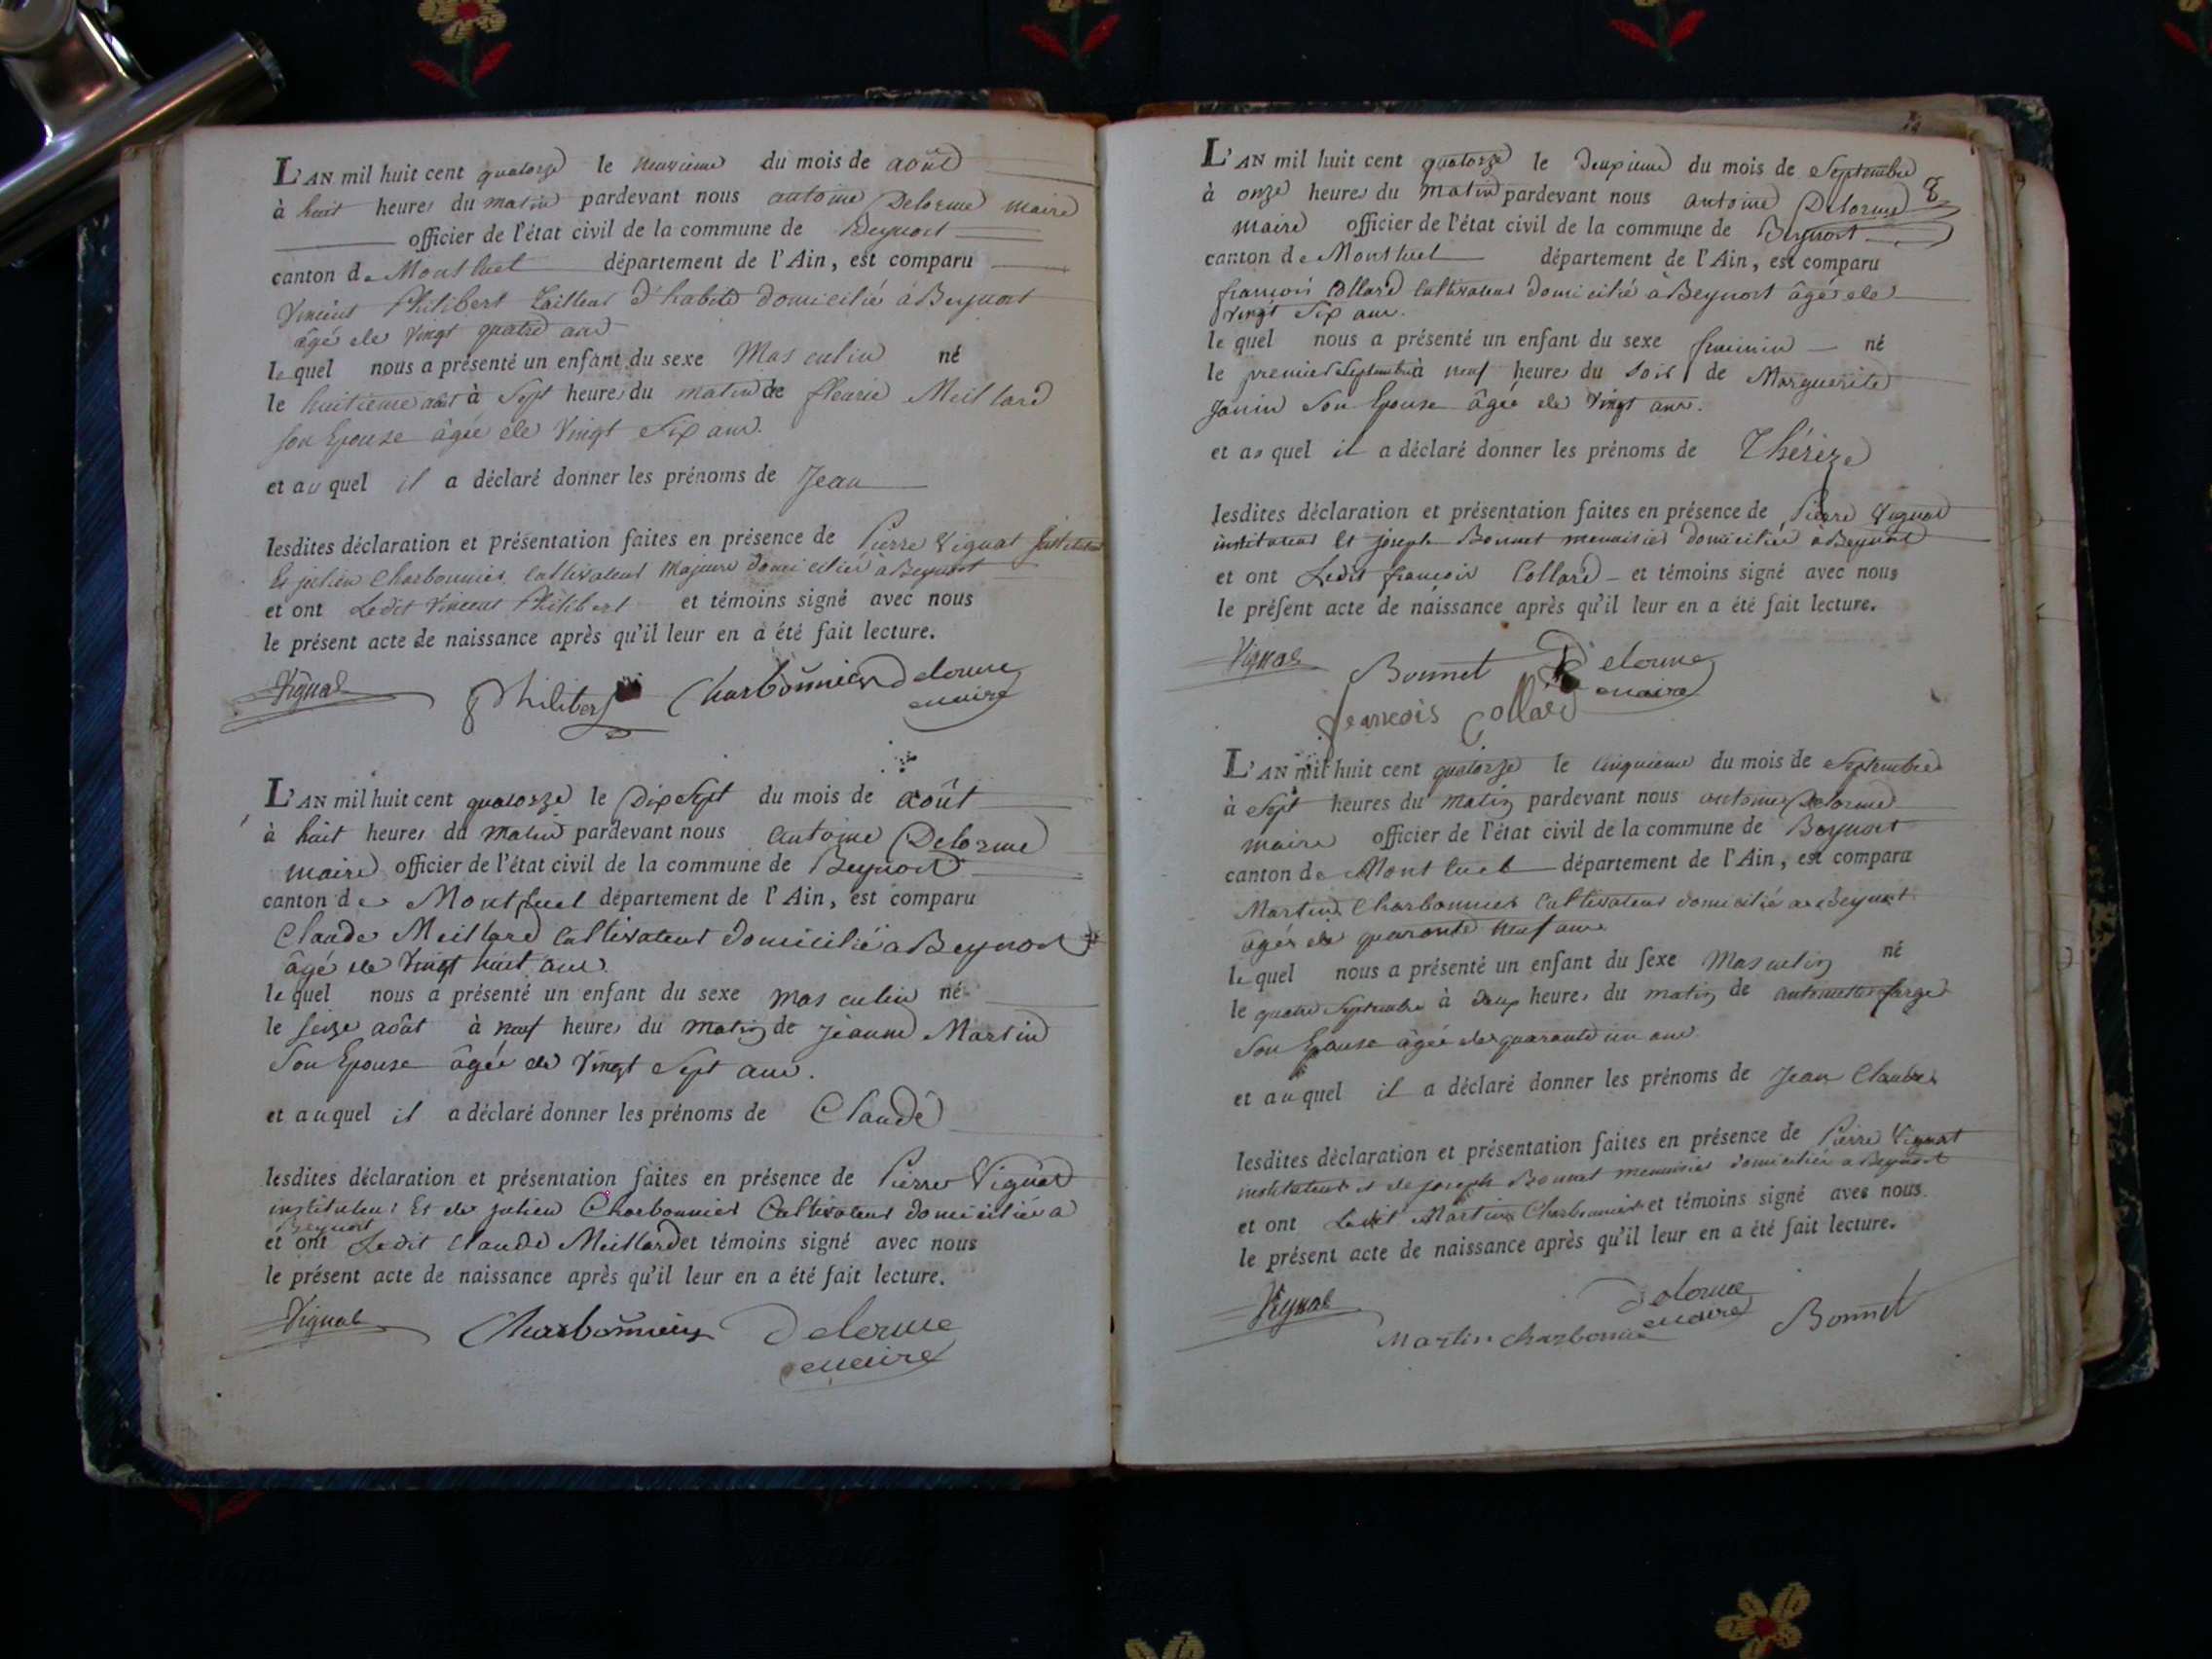 L'AN mil huit cent quatorze le neuvieme du mois de août
à huit heures du matin pardevant nous antoine Delorme maire
officier de l'état civil de la commune de Beynost
canton de Montluel département de l'Ain, est comparu
Vincent Philibert tailleur d'habits domicilié à Beynost
âgé de vingt quatre ans
lequel nous a présenté un enfant du sexe Masculin né
le huitieme août à Sept heures du matin de fleurie Meillard
son Epouse âgée de vingt Six ans.
et auquel il a déclaré donner les prénoms de Jean
lesdites déclaration et présentation faites en présence de Pierre Vignat
Et julien Charbonnier Cultivateur Majeurs domiciliés à Beynost
et ont Ledit Vincent Philibert et témoins signé avec nous
le présent acte de naissance après qu'il leur en a été fait lecture.
Vignat Philibert Charbonnier Delorme
maire
L'AN mil huit cent quatorze le Dix Sept du mois de août
à huit heures du matin pardevant nous antoine Delorme
maire officier de l'état civil de la commune de Beynost
canton de Montluel département de l'Ain, est comparu
Claude Meillard Cultivateur domicilié à Beynost
âgé de vingt huit ans.
lequel nous a présenté un enfant du sexe masculin né
le seize août à neuf heures du matin de jeanne Martin
Son Epouse âgée de vingt Sept ans.
et auquel il a déclaré donner les prénoms de Claude
lesdites déclaration et présentation faites en présence de Pierre Vignat
instituteur Et de julien Charbonnier Cultivateur domiciliés à
Beynost
et ont Ledit Claude Meillard et témoins signé avec nous
le présent acte de naissance après qu'il leur en a été fait lecture.
Vignat Charbonnier Delorme
maire
8
L'AN mil huit cent quatorze le Deuxieme du mois de Septembre
à onze heures du matin pardevant nous antoine Delorme
maire officier de l'état civil de la commune de Beynost
canton de Montluel département de l'Ain, est comparu
françois Collard Cultivateur domicilié à Beynost âgé de
vingt Six ans.
lequel nous a présenté un enfant du sexe feminin né
le premier Septembre à neuf heures du Soir de Marguerite
Janin Son Epouse âgée de vingt ans.
et auquel il a déclaré donner les prénoms de Thérèze
lesdites déclaration et présentation faites en présence de Pierre Vignat
instituteur Et joseph Bonnet menuisier domiciliés à Beynost
et ont Ledit françois Collard et témoins signé avec nous
le présent acte de naissance après qu'il leur en a été fait lecture.
Vignat Bonnet Delorme
maire
francois Collard
L'AN mil huit cent quatorze le Cinquieme du mois de Septembre
à Sept heures du matin pardevant nous antoine Delorme
maire officier de l'état civil de la commune de Beynost
canton de Montluel département de l'Ain, est comparu
Martin Charbonnier Cultivateur domicilié à Beynost
âgé de quarante neuf ans
lequel nous a présenté un enfant du sexe Masculin né
le quatre Septembre à deux heures du matin de antoinette farge
Son Epouse âgée de quarante un ans
et auquel il a déclaré donner les prénoms de Jean Claude
lesdites déclaration et présentation faites en présence de Pierre Vignat
instituteur et de joseph Bonnet menuisier domiciliés à Beynost
et ont Ledit Martin Charbonnier et témoins signé avec nous
le présent acte de naissance après qu'il leur en a été fait lecture.
Vignat Delorme
maire
Martin Charbonnie Bonnet